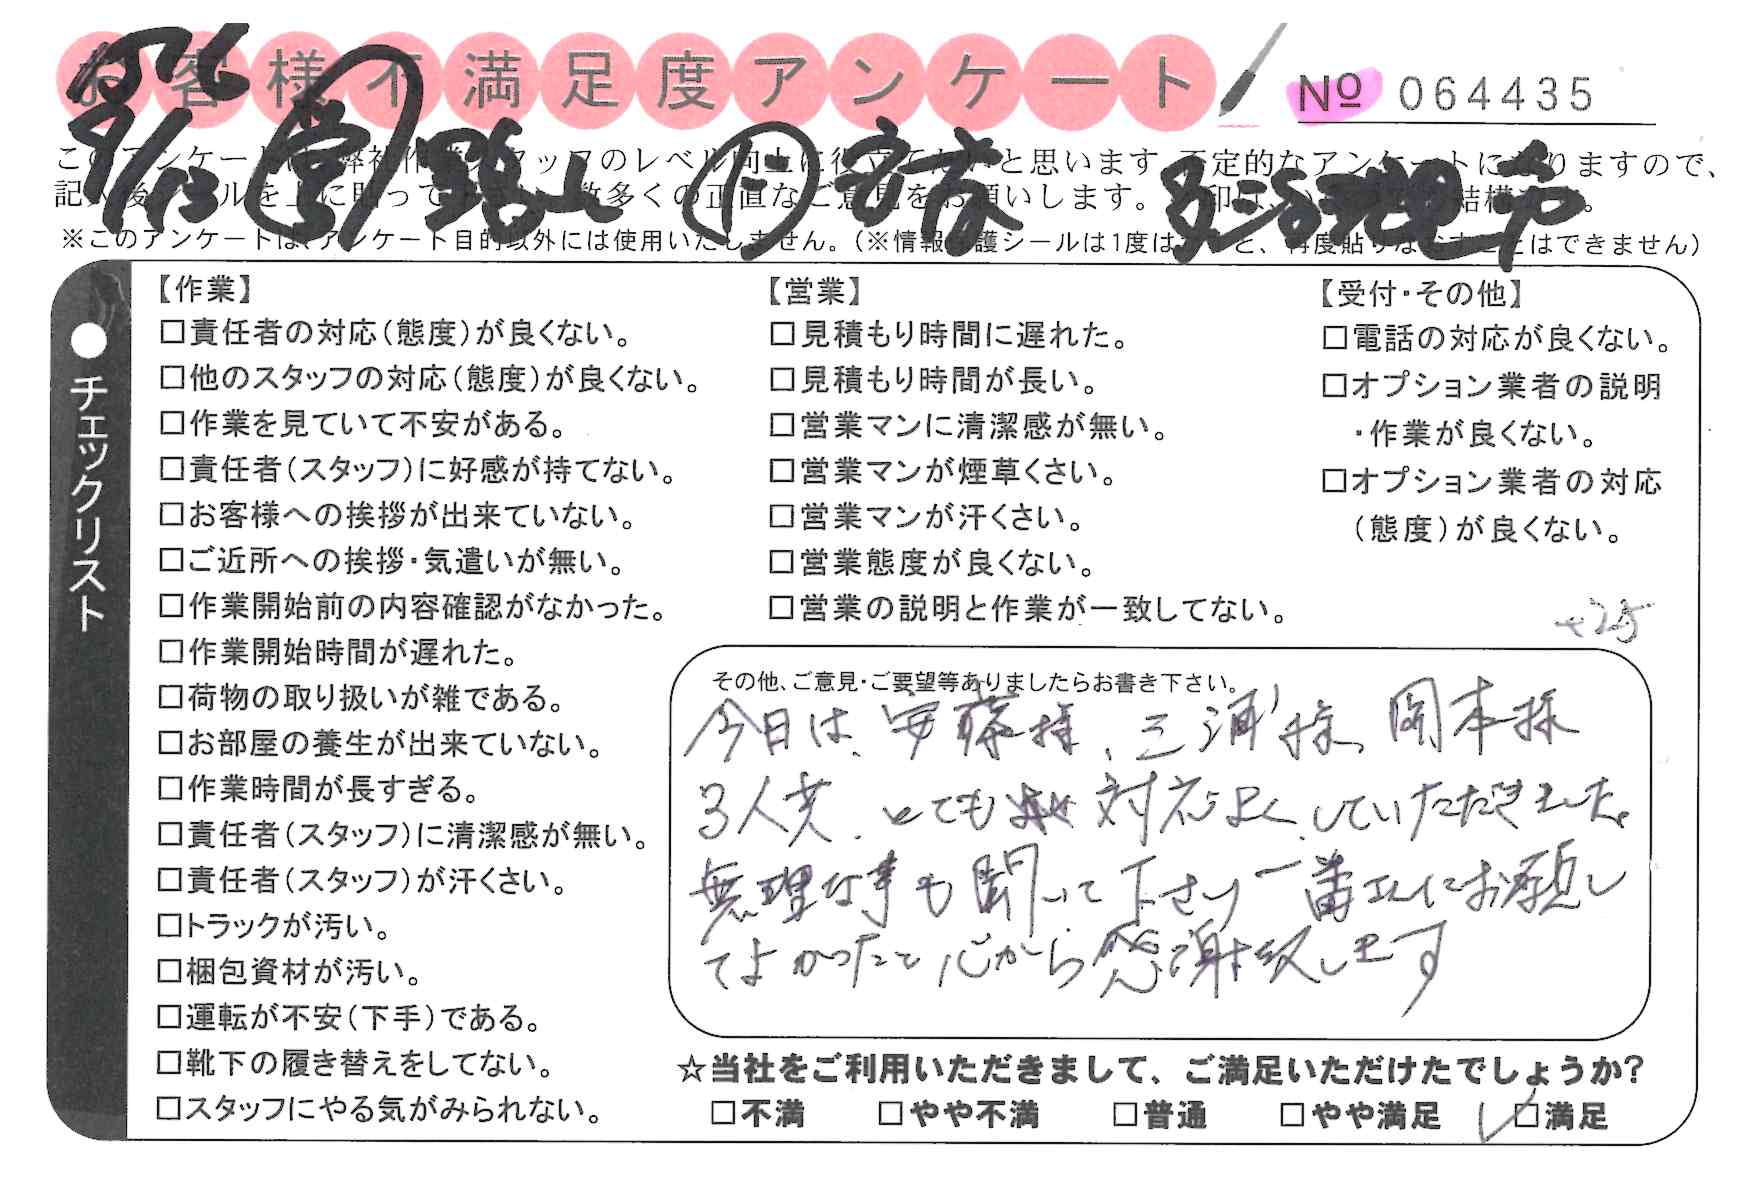 お客様不満足度アンケート
№ 064435
9/13
このアンケートは、弊社作業スタッフのレベル向上に役立てたいと思います。否定的なアンケートになりますので、
※このアンケートは、アンケート目的以外には使用いたしません。(※情報保護シールは1度はると、再度貼りなおすことはできません)
●チェックリスト
【作業】
□責任者の対応(態度)が良くない。
□他のスタッフの対応(態度)が良くない。
□作業を見ていて不安がある。
□責任者(スタッフ)に好感が持てない。
□お客様への挨拶が出来ていない。
□ご近所への挨拶・気遣いが無い。
□作業開始前の内容確認がなかった。
□作業開始時間が遅れた。
□荷物の取り扱いが雑である。
□お部屋の養生が出来ていない。
□作業時間が長すぎる。
□責任者(スタッフ)に清潔感が無い。
□責任者(スタッフ)が汗くさい。
□トラックが汚い。
□梱包資材が汚い。
□運転が不安(下手)である。
□靴下の履き替えをしてない。
□スタッフにやる気がみられない。
【営業】
□見積もり時間に遅れた。
□見積もり時間が長い。
□営業マンに清潔感が無い。
□営業マンが煙草くさい。
□営業マンが汗くさい。
□営業態度が良くない。
□営業の説明と作業が一致してない。
【受付・その他】
□電話の対応が良くない。
□オプション業者の説明
・作業が良くない。
□オプション業者の対応
(態度)が良くない。
その他、ご意見・ご要望等ありましたらお書き下さい。
今日は、安藤様、三浦様、岡本様
3人共、とても対応よく、していただきました。
無理な事も聞いて下さり一番さんにお願いし
てよかったと心から感謝致します
☆当社をご利用いただきまして、ご満足いただけたでしょうか?
□不満 □やや不満 □普通 □やや満足 □満足